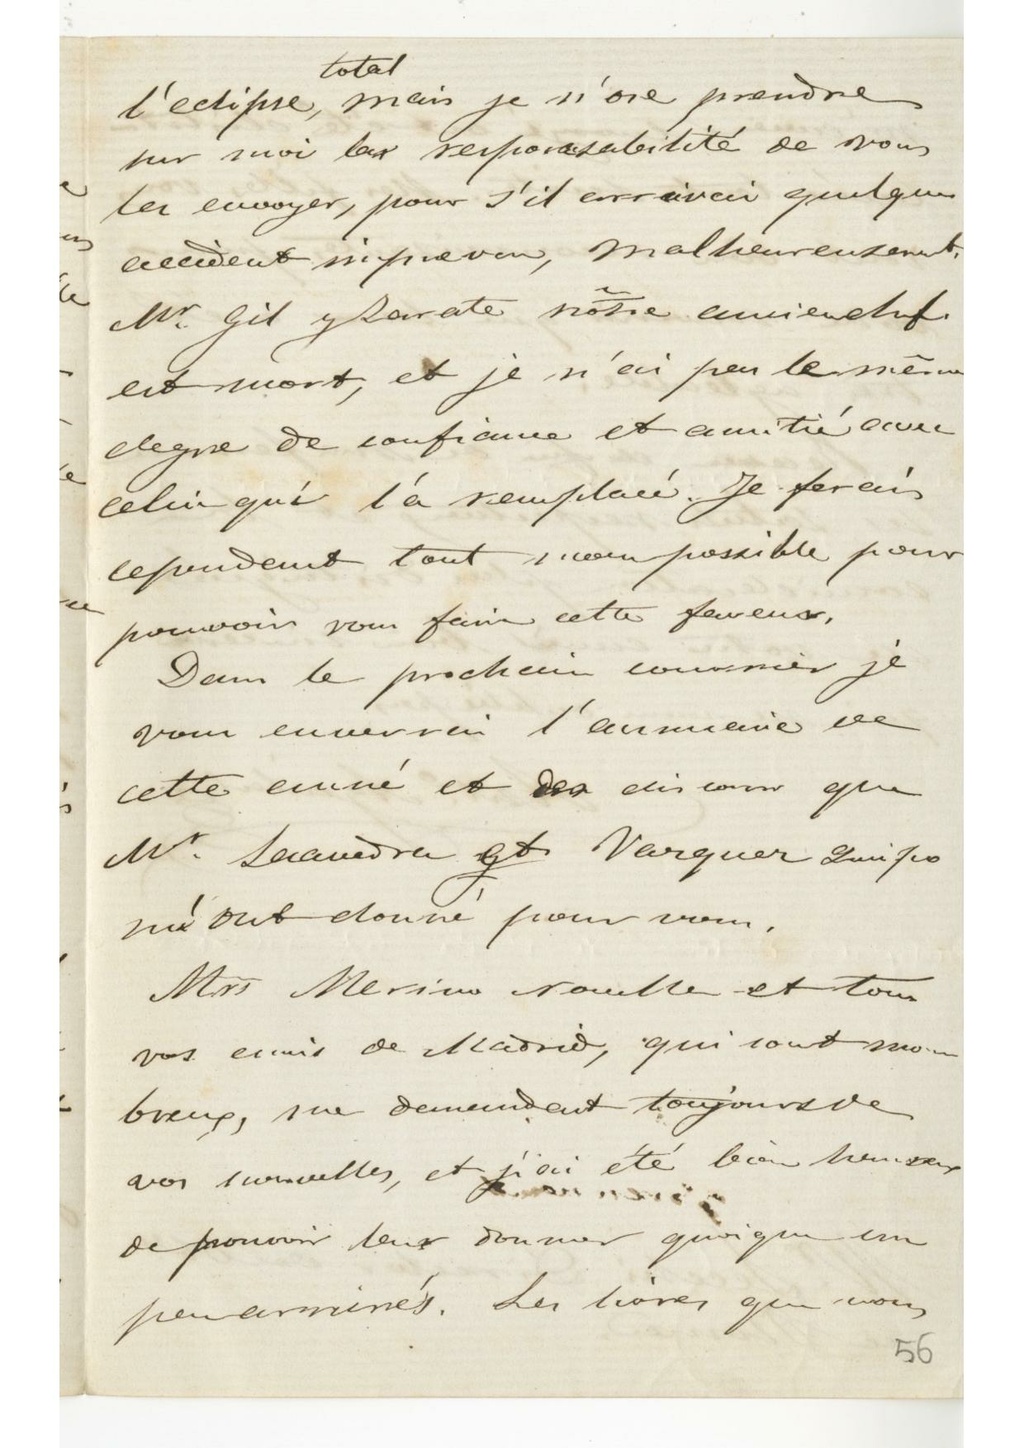 total
l'eclipse, mais je n'ose prendre
sur moi la responsabilité de vous
les envoyer, pour s'il arrivai quelque
accident imprevu, malheureusement.
Mr. Gil y Zarate nôtre ancien chef
est mort, et je n'ai pas le même
degre de confiance et amitié avec
celui qui l'a remplacé. Je ferais
cependent tout mon possible pour
pouvoir vous faire cette faveur.
Dans le prochain courrier je
vous enverrai l'annuaire de
cette anné et des discours que
Mr. Saavedra et Vazquez Queipo
m'ont donné pour vous.
Mrs Merino Novella et tous
vos amis de Madrid, qui sont nom
breux, me demandent toujours de
vos nouvelles, et j'ai été bien heureux
de pouvoir leur donner quoique un
peu arrierés. Les livres que vous
56